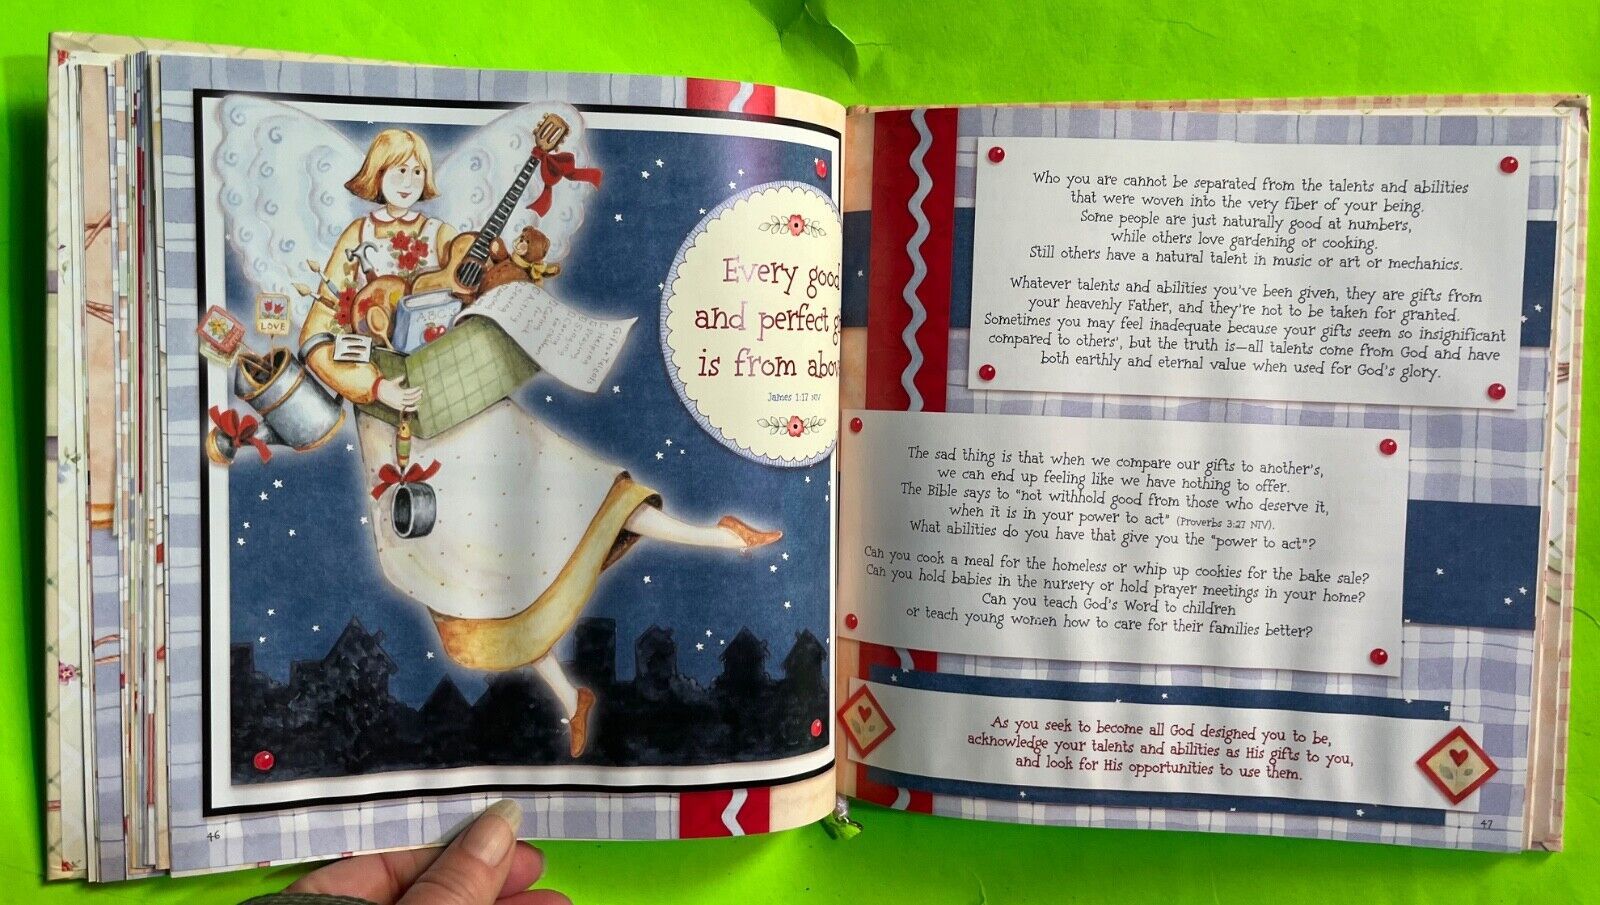 LOVE
ABC's
Every good
and perfect
is from
James 1:17 NIV
46
Who you are cannot be separated from the talents and abilities
that were woven into the very fiber of your being.
Some people are just naturally good at numbers,
while others love gardening or cooking.
Still others have a natural talent in music or art or mechanics.
Whatever talents and abilities you've been given, they are gifts from
your heavenly Father, and they're not to be taken for granted.
Sometimes you may feel inadequate because your gifts seem so insignificant
compared to others', but the truth is—all talents come from God and have
both earthly and eternal value when used for God's glory.
The sad thing is that when we compare our gifts to another's,
we can end up feeling like we have nothing to offer.
The Bible says to "not withhold good from those who deserve it,
when it is in your power to act" (Proverbs 3:27 NIV).
What abilities do you have that give you the "power to act"?
Can you cook a meal for the homeless or whip up cookies for the bake sale?
Can you hold babies in the nursery or hold prayer meetings in your home?
Can you teach God's Word to children
or teach young women how to care for their families better?
As you seek to become all God designed you to be,
acknowledge your talents and abilities as His gifts to you,
and look for His opportunities to use them.
47